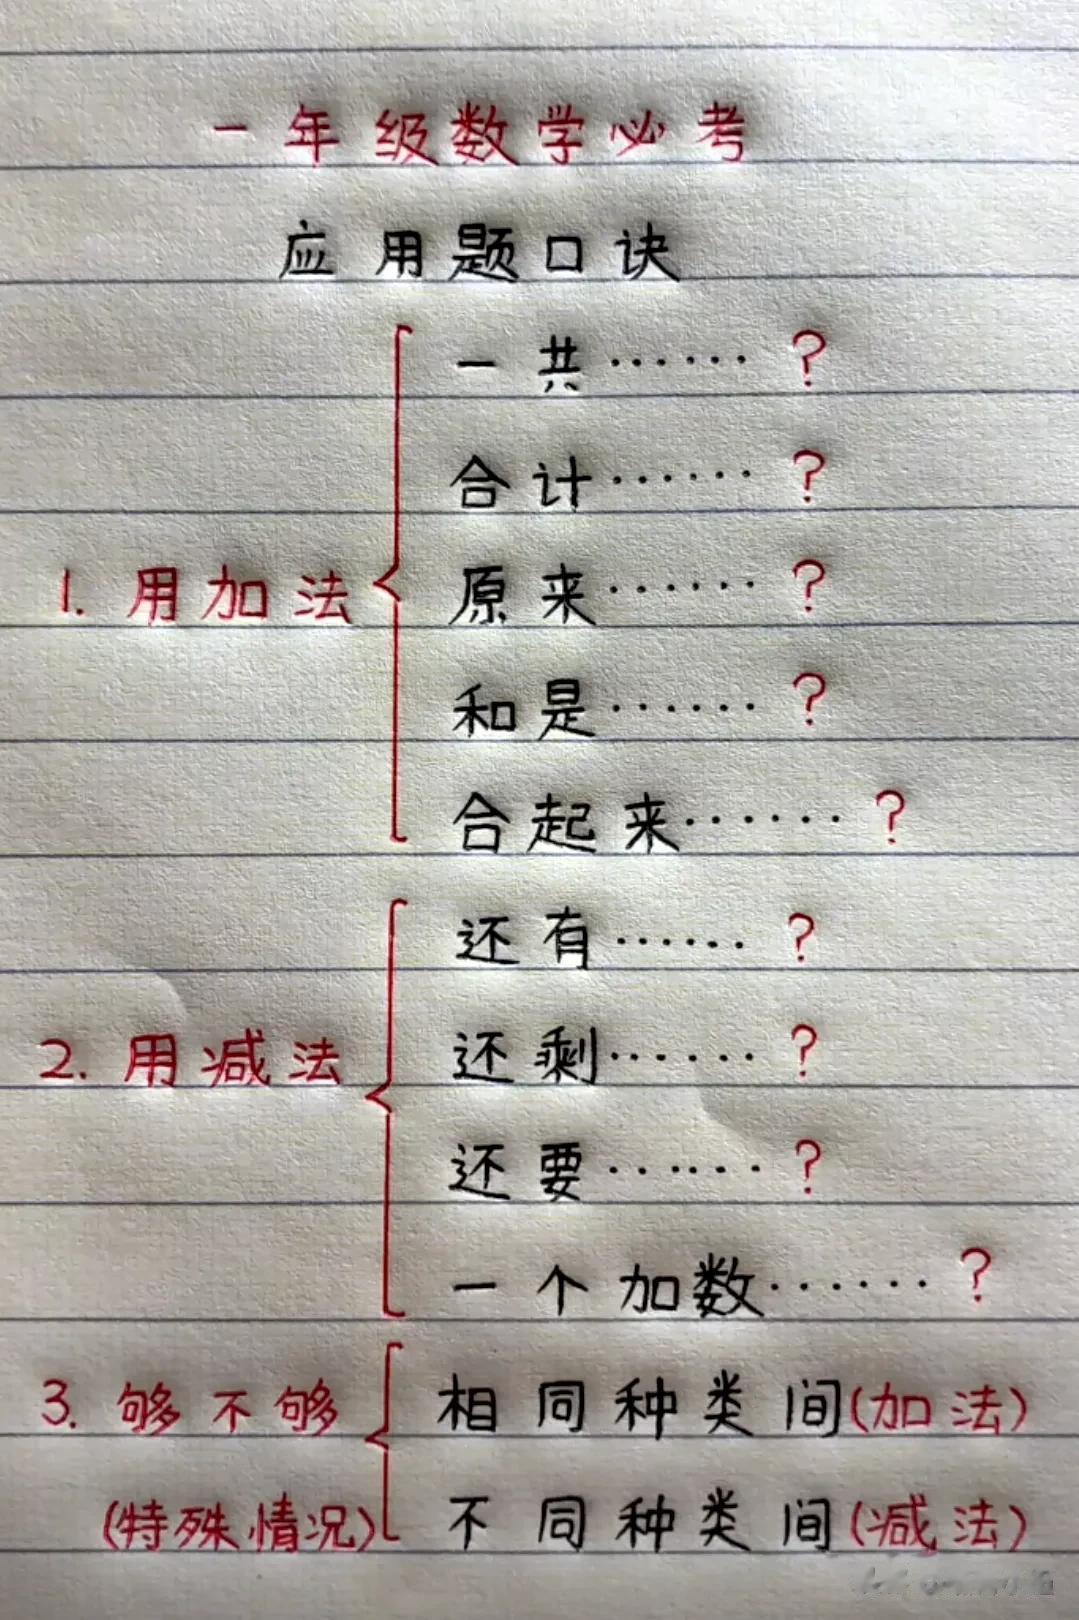 一年级数学必考
应用题口诀
一共······?
合计······?
1.用加法 原来······?
和是······?
合起来······?
还有······?
2.用减法 还剩······?
还要······?
一个加数······?
3.够不够 相同种类间(加法)
(特殊情况) 不同种类间(减法)